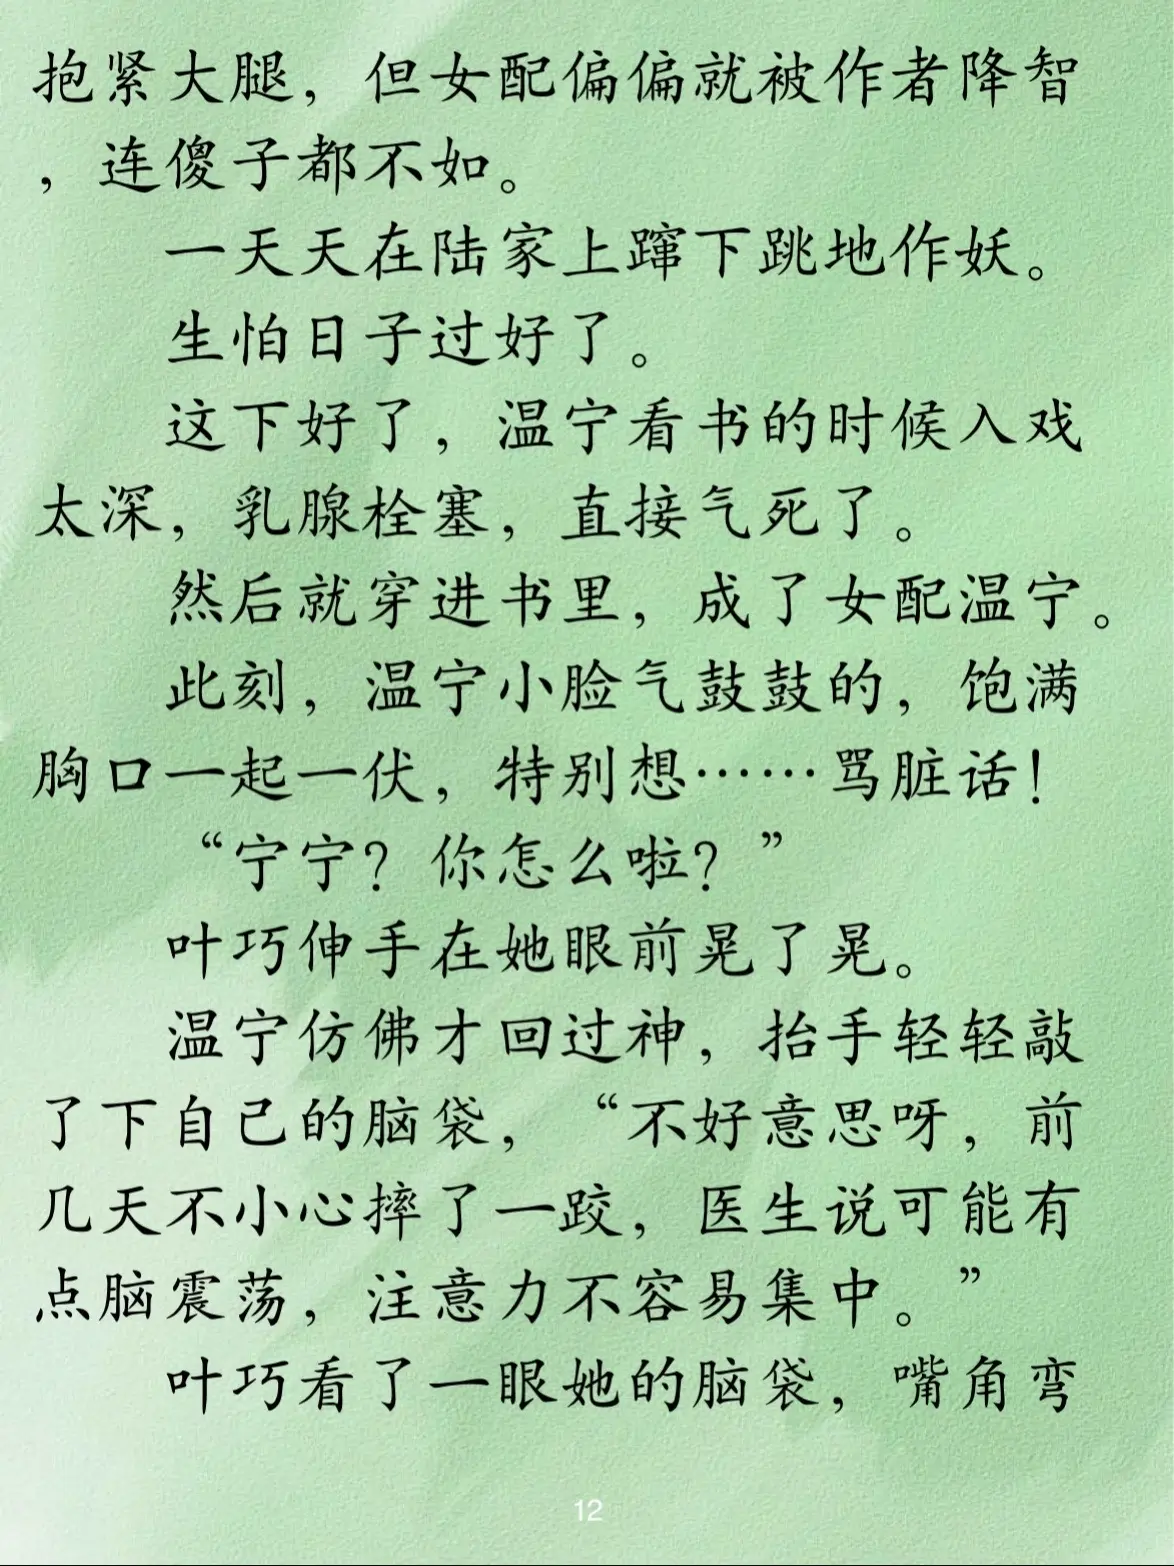 抱紧大腿，但女配偏偏就被作者降智
，连傻子都不如。
一天天在陆家上蹿下跳地作妖。
生怕日子过好了。
这下好了，温宁看书的时候入戏
太深，乳腺栓塞，直接气死了。
然后就穿进书里，成了女配温宁。
此刻，温宁小脸气鼓鼓的，饱满
胸口一起一伏，特别想……骂脏话！
“宁宁？你怎么啦？”
叶巧伸手在她眼前晃了晃。
温宁仿佛才回过神，抬手轻轻敲
了下自己的脑袋，“不好意思呀，前
几天不小心摔了一跤，医生说可能有
点脑震荡，注意力不容易集中。”
叶巧看了一眼她的脑袋，嘴角弯
12